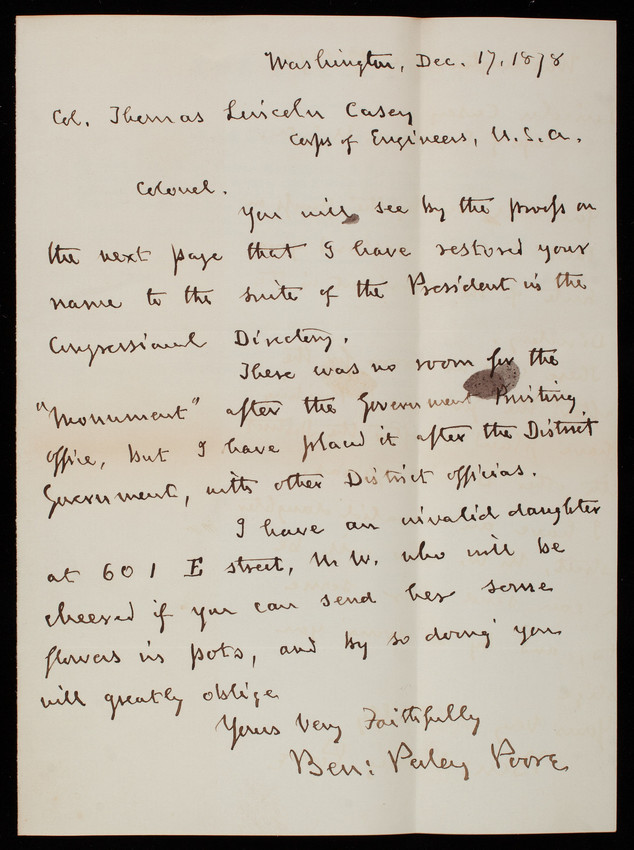 Washington, Dec. 17, 1878
Col. Thomas Lincoln Casey
Corps of Engineers, U.S.A.
Colonel.
You will see by the proofs on
the next page that I have restored your
name to the suite of the President in the
Congressional Directory.
There was no room for the
"Monument" after the Government Printing
office, but I have placed it after the District
Government, with other District officias.
I have an invalid daughter
at 601 E street, N.W. who will be
cheered if you can send her some
flowers in pots, and by so doing you
will greatly oblige
Yours Very Faithfully
Ben: Perley Poore